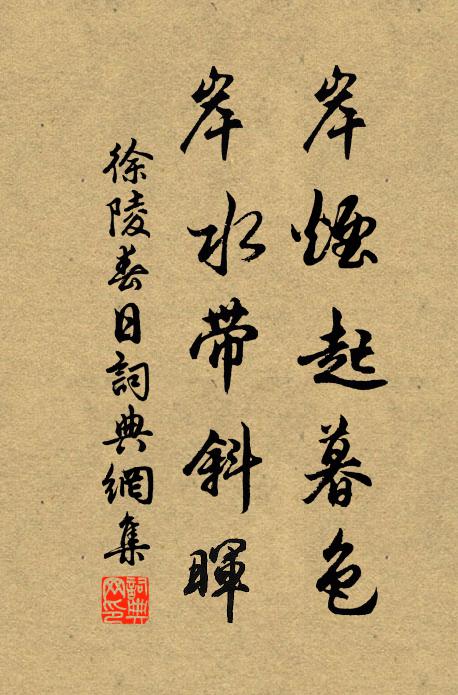 岸煙起暮色
岸水帶斜暉
徐陵春日詞典網集
詞典網印